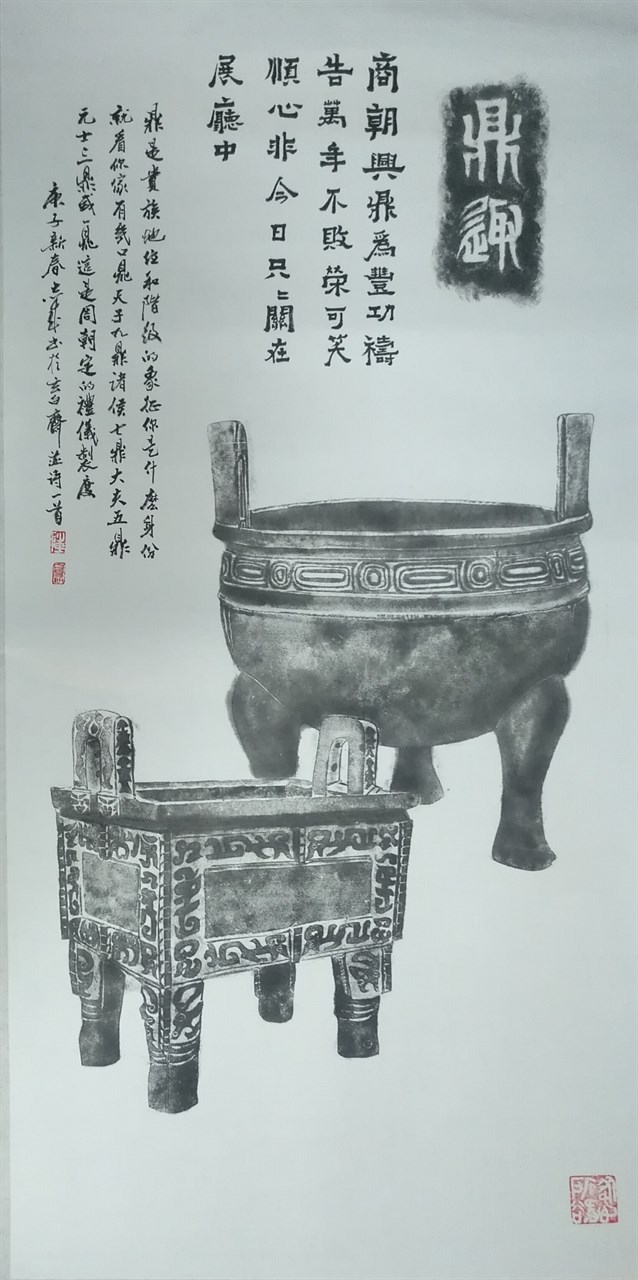 鼎趣
商朝興鼎爲豐功禱
告萬年不敗榮可笑
順心非今日只只關在
展廳中
鼎是貴族地位和階級的象征你是什麽身份
就看你家有幾口鼎天子九鼎諸侯七鼎大夫五鼎
元士三鼎或一鼎這是周朝定的禮儀製度
庚子新春 書於 齋並诗一首